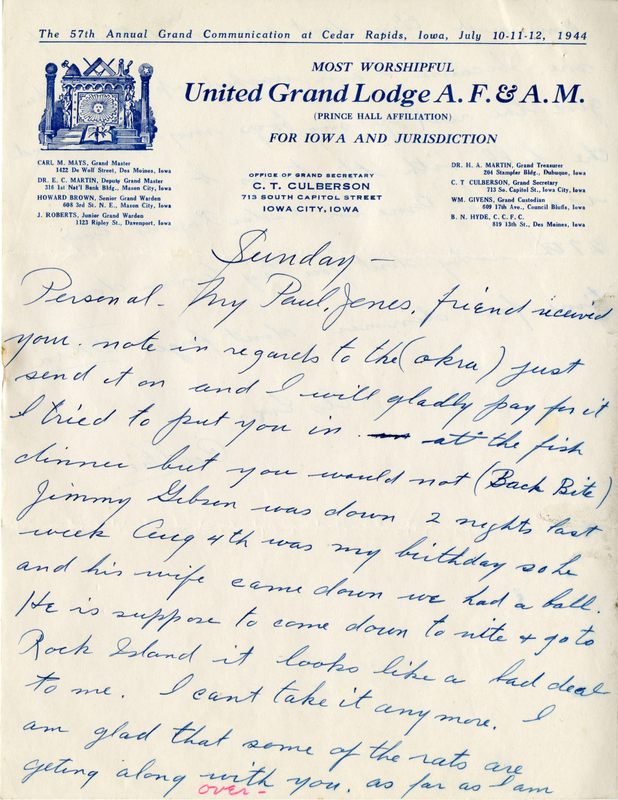 The 57th Annual Grand Communication at Cedar Rapids, Iowa, July 10-11-12, 1944
MOST WORSHIPFUL
United Grand Lodge A. F. & A. M.
(PRINCE HALL AFFILIATION)
FOR IOWA AND JURISDICTION
CARL M. MAYS, Grand Master
1422 De Wolf Street, Des Moines, Iowa
DR. E. C. MARTIN, Deputy Grand Master
316 1st Nat'l Bank Bldg., Mason City, Iowa
HOWARD BROWN, Senior Grand Warden
608 3rd St. N. E., Mason City, Iowa
J. ROBERTS, Junior Grand Warden
1123 Ripley St., Davenport, Iowa
OFFICE OF GRAND SECRETARY
C. T. CULBERSON
713 SOUTH CAPITOL STREET
IOWA CITY, IOWA
DR. H. A. MARTIN, Grand Treasurer
204 Stampfer Bldg., Dubuque, Iowa
C. T CULBERSON, Grand Secretary
713 So. Capitol St., Iowa City, Iowa
WM. GIVENS, Grand Custodian
609 17th Ave., Council Bluffs, Iowa
B. N. HYDE, C. C. F. C.
819 13th St., Des Moines, Iowa
Sunday -
Personal - My Paul, Jones, friend received
your note in regards to the (okra) just
send it on and I will gladly pay for it
I tried to put you in at the fish
dinner but you would not (Back Bite)
Jimmy Gibson was down 2 nights last
week Aug 4th was my birthday so he
and his wife came down we had a ball.
He is suppose to come down to nite & go to
Rock Island it looks like a bad deal
to me. I cant take it any more. I
am glad that some of the rats are
geting along with you. as far as I am
over-